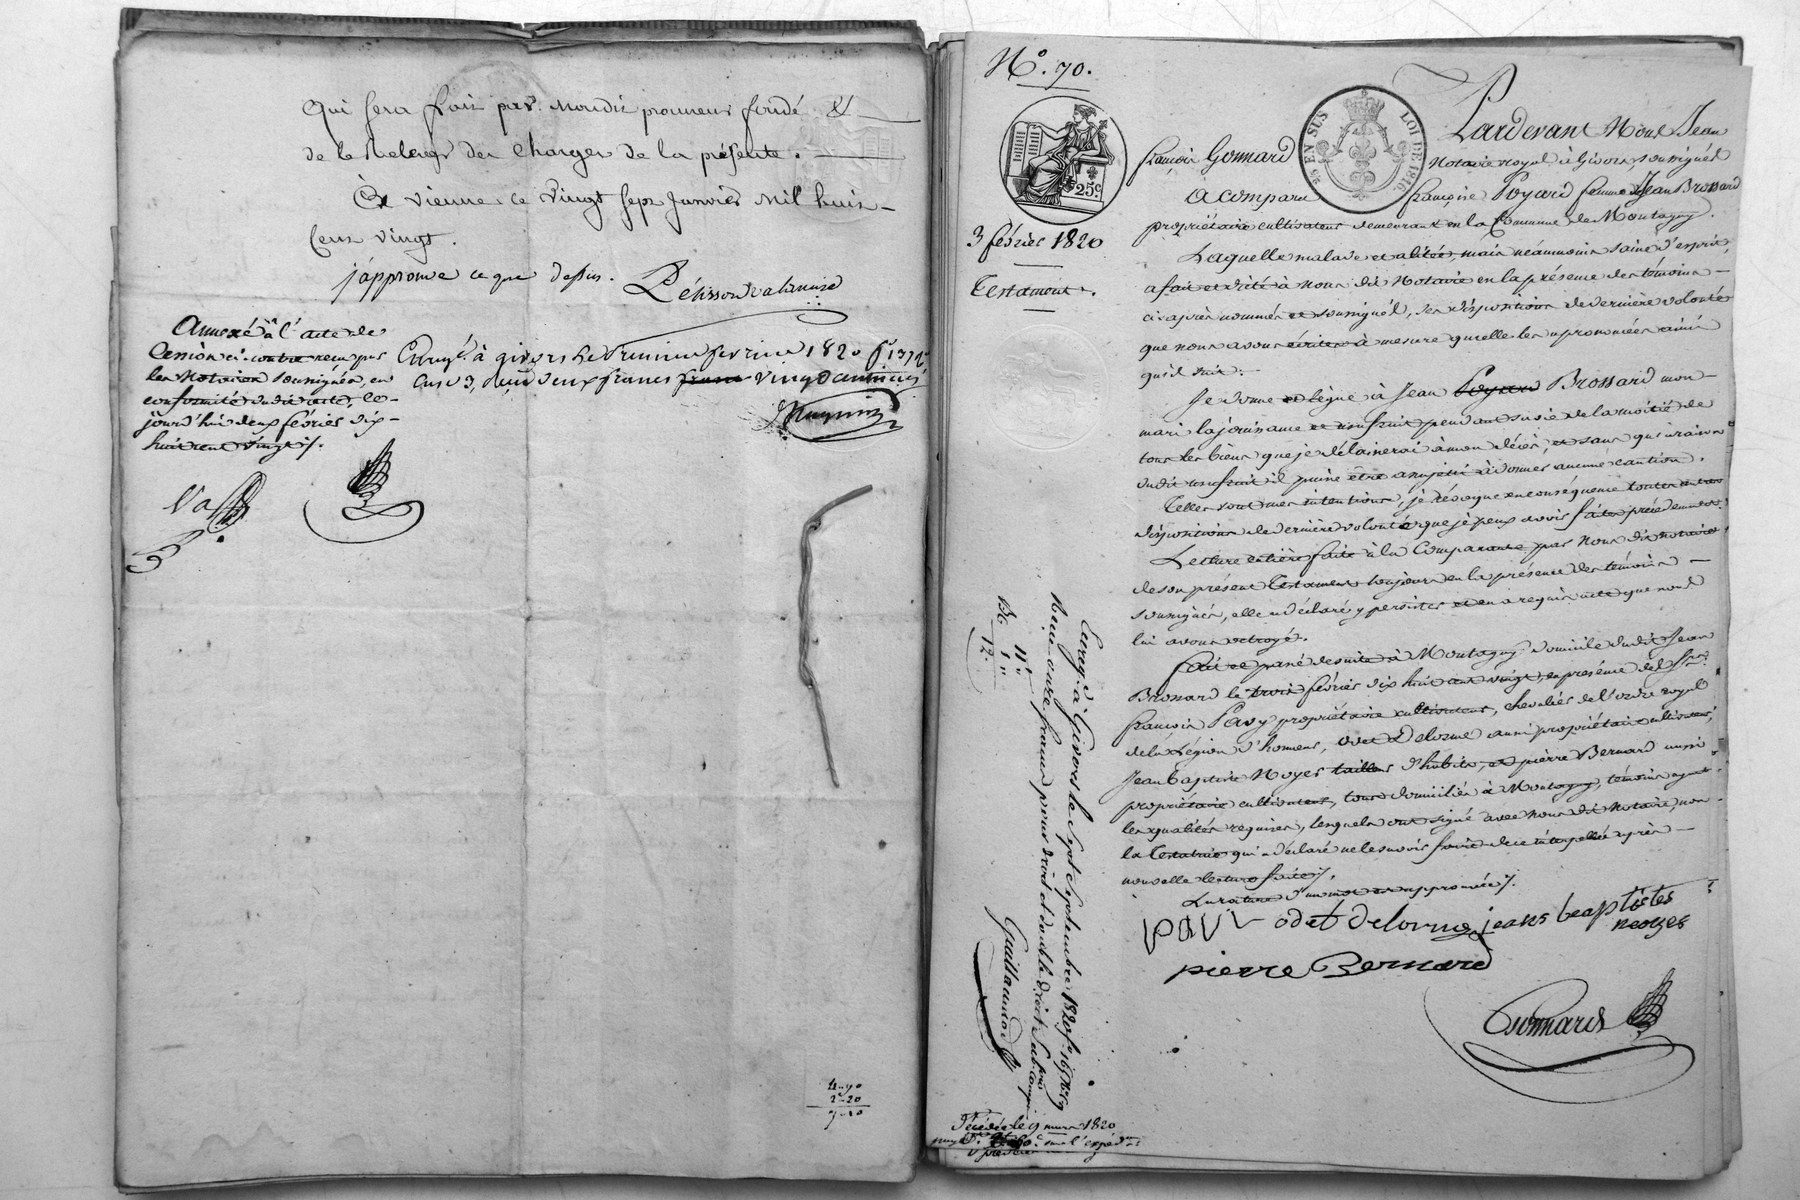 qui sera fait par mondit procureur fondé &
de le Relever des charges de la présente.
à Vienne ce vingt sept Janvier mil huit
cent vingt.
j'approuve ce que dessus.
Annexé à l'acte de
Cession ci-contre reçu par
les Notaires soussignés, en
conformité dudit acte, ce
jourd'hui deux février dix-
huit cent vingt ./.
Enregé. à givors le premier fevrier 1820 fo
Case 3, Reçu deux francs vingt centimes
4,,90
2,,20
7,,10
No. 70.
25c.
EN SUS
LOI DE 1816
3 février 1820
Testament.
Pardevant Nous Jean
françois Gonnard Notaire royal à Givors, soussigné
A comparu françoise Poyard femme Jean Brossard
propriétaire cultivateur demeurant en la Commune de Montagny.
Laquelle malade et alitée, mais néanmoins saine d'esprit,
a fait et dicté à nous dit Notaire en la présence des témoins
ci-après nommés et soussignés, ses dispositions de dernière volonté
que nous avons écrites à mesure qu'elle les a prononcées ainsi
qu'il suit :
Je donne et lègue à Jean Poyard Brossard mon
mari la jouissance et usufruit pendant sa vie de la moitié de
tous les biens que je délaisserai à mon décès, et sans qu'à raison
dudit usufruit il puisse être assujetti à donner aucune caution.
Telles sont mes intentions, je révoque en conséquence toutes autres
dispositions de dernière volonté que je peux avoir faites précédemment.
Lecture entière faite à la Comparante par Nous dit notaire
de son présent Testament toujours en la présence des témoins
soussignés, elle a déclaré y persister et en a requis acte que nous
lui avons octroyé.
fait et passé de suite à Montagny domicile dudit Jean
Brossard le trois février dix huit cent vingt, en présence des Srs.
françois Pavy propriétaire cultivateur, chevalier de l'ordre royal
de la Légion d'honneur, Odet Delorme aussi propriétaire cultivateur,
Jean Baptiste Noyer tailleur d'habits, et pierre Bernard aussi
propriétaire cultivateur, tous domiciliés à Montagny, témoins ayant
les qualités requises, lesquels ont signé avec Nous dit Notaire, non
la Testatrice qui a déclaré ne le savoir faire de ce interpellée après
nouvelle lecture faite ./.
La rature d'un mot est approuvée ./.
pavi odet delorme jeans baptistes
neoyer
pierre Bernard
Gonnard
Enreg. à Givors le sept septembre 1820 fo
Reçu onze francs pour droit et double droit
Guillaumod
11,,
1,,
12.
9 mars 1820